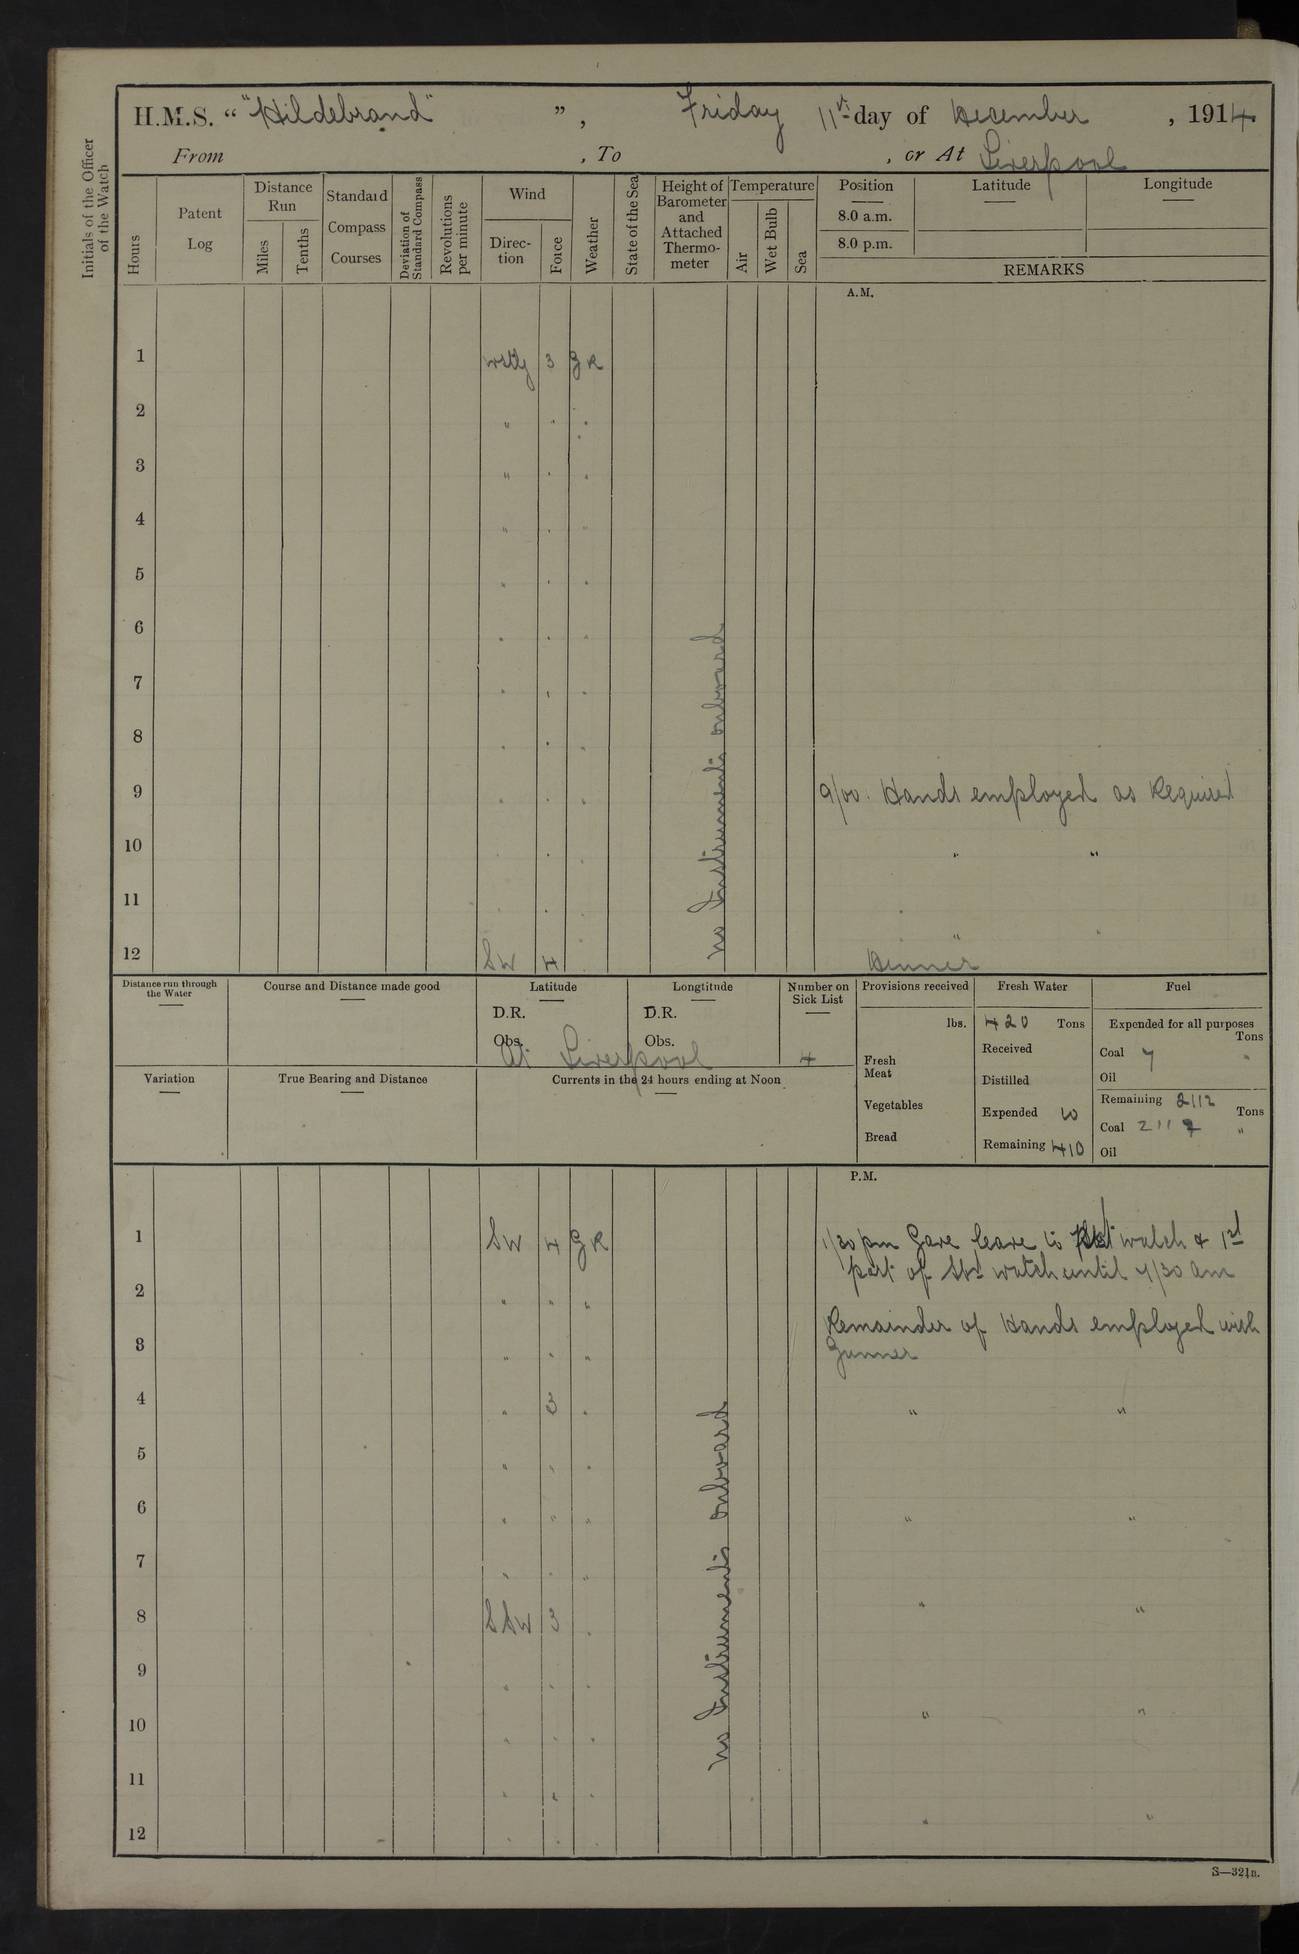 H.M.S. " "Hildebrand" ", Friday 11th day of December, 1914
From , To , or At Liverpool
Initials of the Officer of the Watch
Hours
Patent Log
Distance Run
Miles
Tenths
Standard Compass Courses
Deviation of Standard Compass
Revolutions per minute
Wind
Direc-tion
Force
Weather
State of the Sea
Height of Barometer and Attached Thermo-meter
Temperature
Air
Wet Bulb
Sea
Position
8.0 a.m.
8.0 p.m.
Latitude
Longitude
REMARKS
A.M.
1 wstly 3 g R
2 " " "
3 " " "
4 " " "
5 " " "
6 " " "
7 " " "
8 " " "
9 " " " 9/00. Hands employed as Required
10 " " " " "
11 " " " " "
12 SW 4 Dinner
No Instruments onboard
Distance run through the Water
Course and Distance made good
Latitude
D.R.
Obs.
Longtitude
D.R.
Obs.
At Liverpool
Number on Sick List
4
Provisions received
lbs.
Fresh Meat
Vegetables
Bread
Fresh Water
420 Tons
Received
Distilled
Expended 10
Remaining 410
Fuel
Expended for all purposes
Tons
Coal 7 "
Oil
Remaining 2112 Tons
Coal 2112 "
Oil
Variation
True Bearing and Distance
Currents in the 24 hours ending at Noon
P.M.
1 SW 4 g R 1/30 pm Gave leave to Port watch & 1st
part of Stbd watch until 7/30 am
2 " " "
Remainder of Hands employed with
3 " " " Gunner
4 " 3 " " "
5 " " "
6 " " " " "
7 " " "
8 SSW 3 " " "
9 " " "
10 " " " " "
11 " " "
12 " " " " "
No Instruments onboard
S—321B.